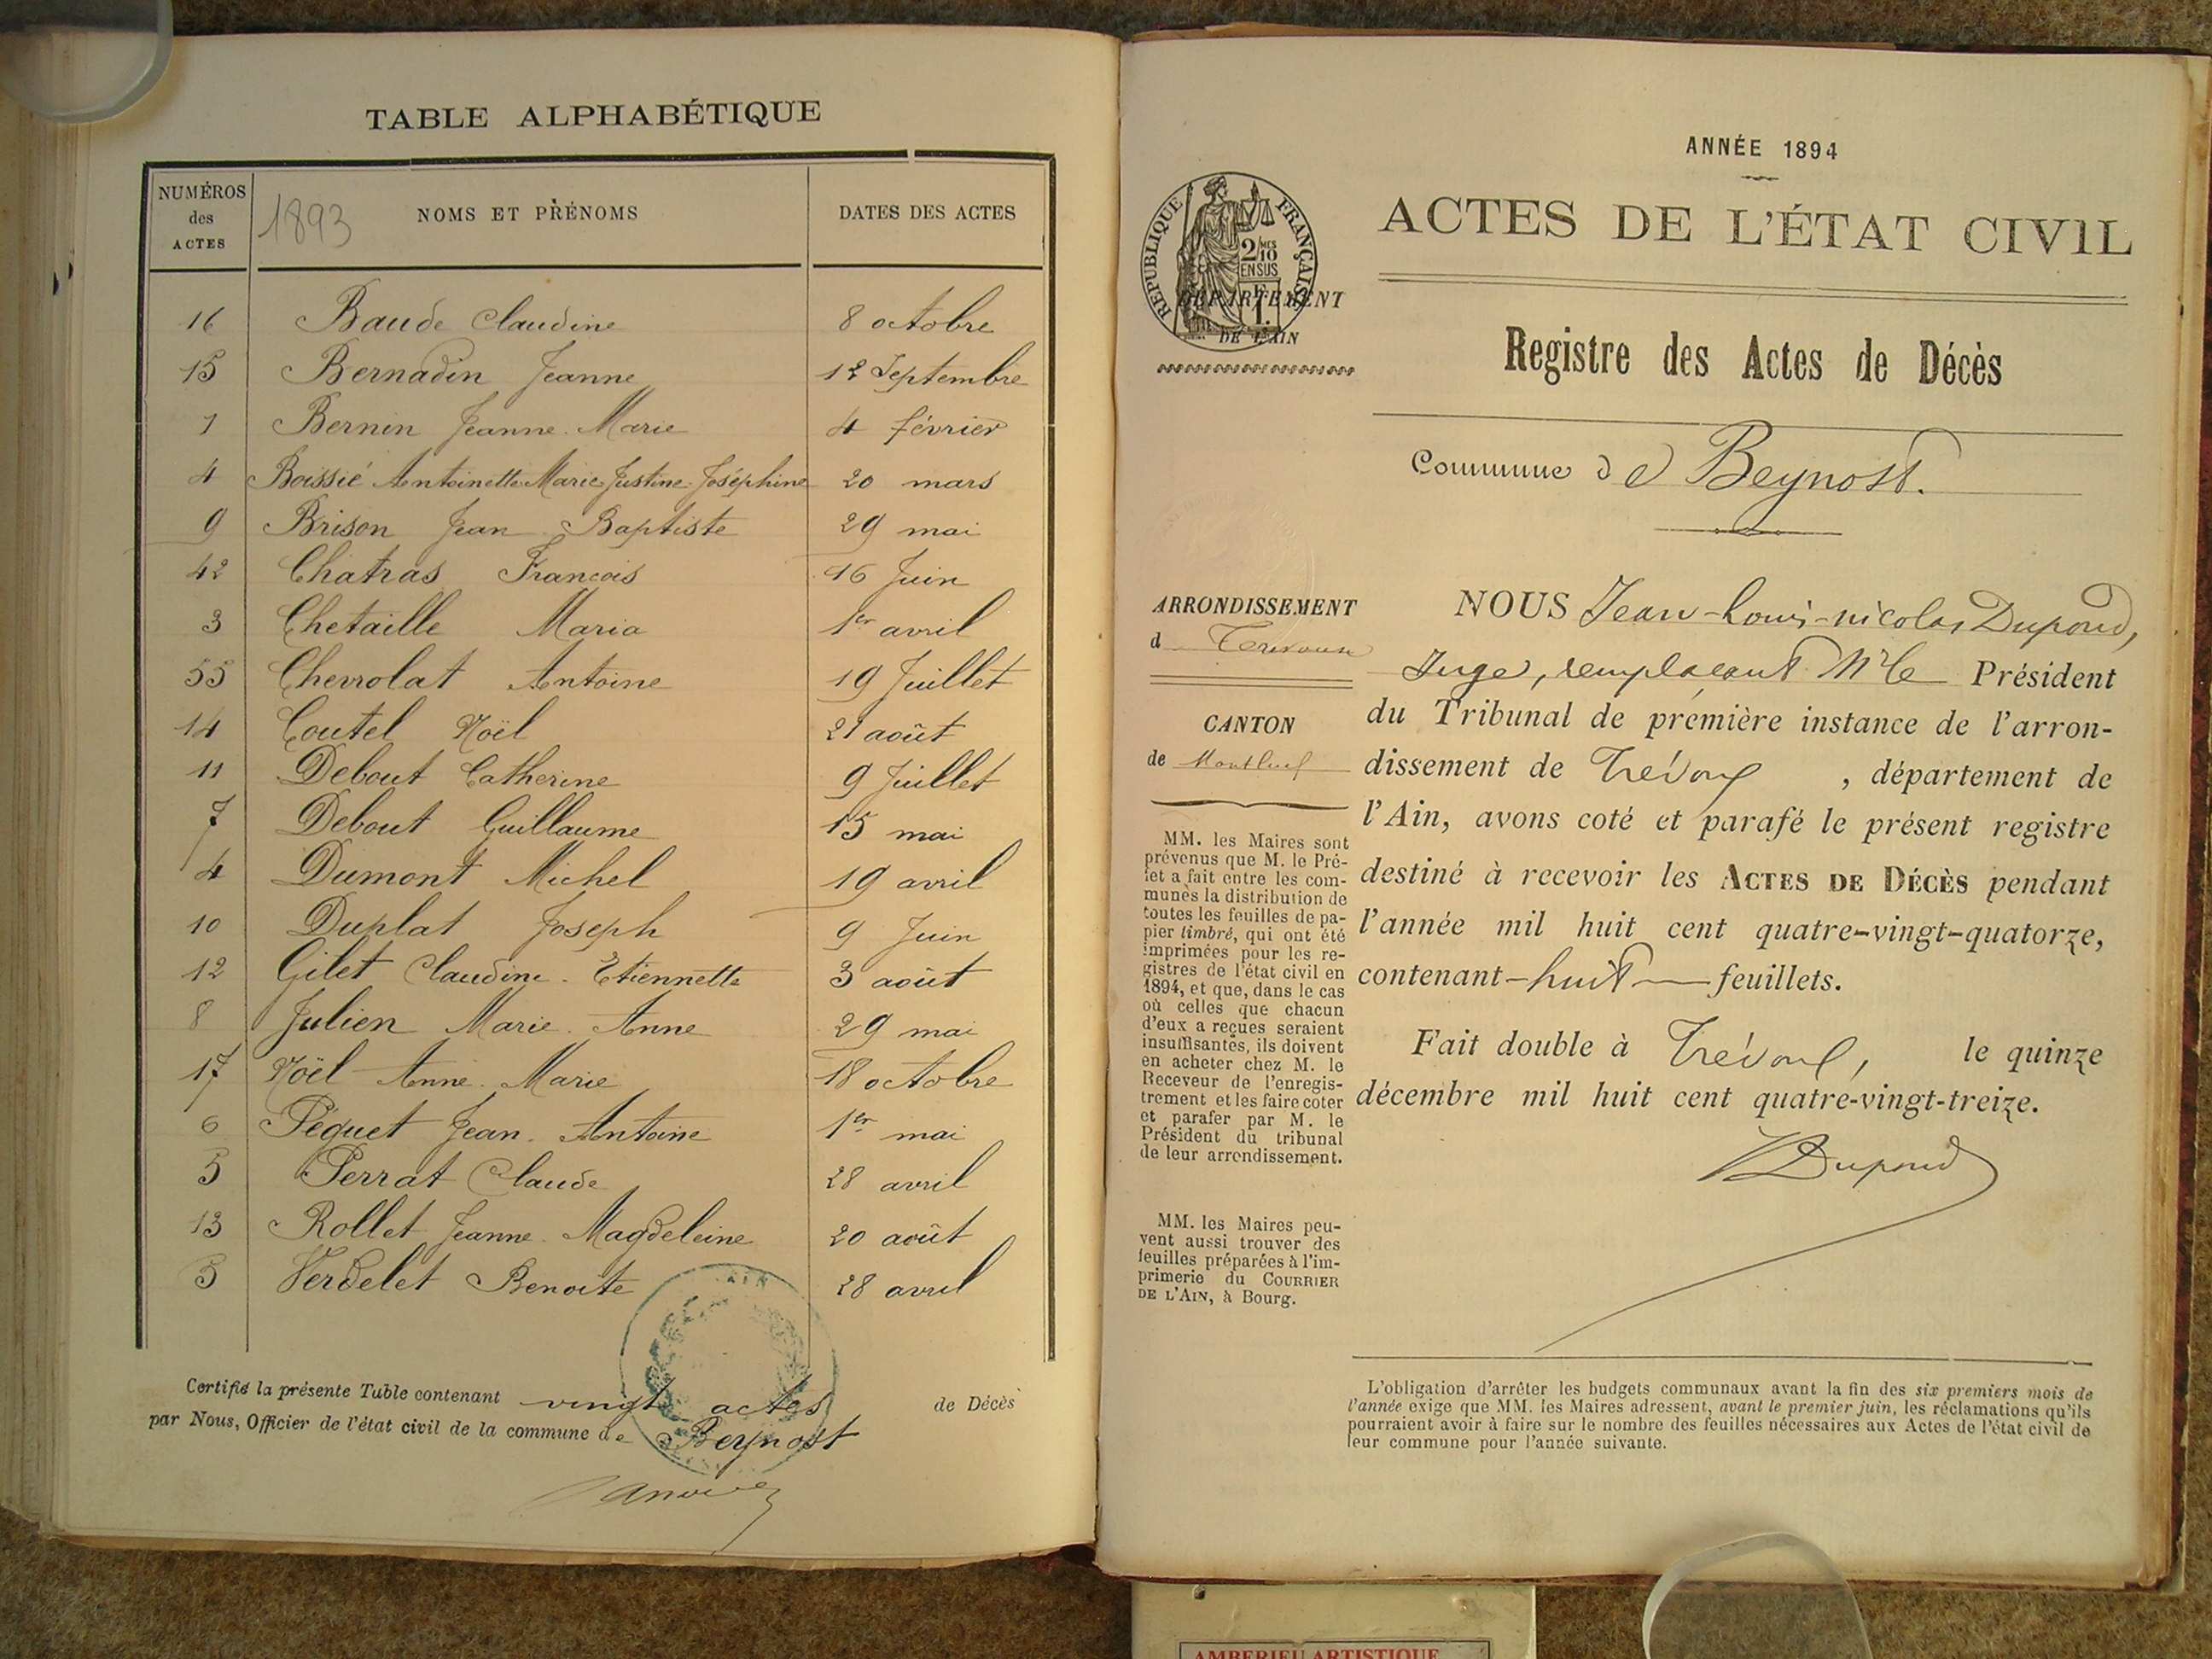 TABLE ALPHABÉTIQUE
NUMÉROS des ACTES
1893
NOMS ET PRÉNOMS
DATES DES ACTES
16 Baude Claudine 8 octobre
15 Bernadin Jeanne 12 Septembre
1 Bernin Jeanne Marie 4 février
4 Boissié Antoinette Marie Justine Joséphine 20 mars
9 Brison Jean Baptiste 29 mai
42 Chatras François 16 Juin
3 Chetaille Maria 1er avril
55 Chevrolat Antoine 19 Juillet
14 Coutel Noël 21 août
11 Debout Catherine 9 Juillet
7 Debout Guillaume 15 mai
4 Dumont Michel 19 avril
10 Duplat Joseph 9 Juin
12 Gilet Claudine Etiennette 3 août
8 Julien Marie Anne 29 mai
17 Noël Anne Marie 18 octobre
6 Péquet Jean Antoine 1er mai
5 Perrat Claude 28 avril
13 Rollet Jeanne Magdeleine 20 août
5 Verdelet Benoite 28 avril
Certifié la présente Table contenant vingt actes de Décès
par Nous, Officier de l'état civil de la commune de Beynost
ANNÉE 1894
ACTES DE L'ÉTAT CIVIL
RÉPUBLIQUE FRANÇAISE
2/10 MES
EN SUS
1F.
DÉPARTEMENT
DE L'AIN
Registre des Actes de Décès
Commune de Beynost.
ARRONDISSEMENT
d
CANTON
de Montluel
MM. les Maires sont
prévenus que M. le Pré-
fet a fait entre les com-
munes la distribution de
toutes les feuilles de pa-
pier timbré, qui ont été
imprimées pour les re-
gistres de l'état civil en
1894, et que, dans le cas
où celles que chacun
d'eux a reçues seraient
insuffisantes, ils doivent
en acheter chez M. le
Receveur de l'enregis-
trement et les faire coter
et parafer par M. le
Président du tribunal
de leur arrondissement.
MM. les Maires peu-
vent aussi trouver des
feuilles préparées à l'im-
primerie du COURRIER
DE L'AIN, à Bourg.
NOUS Jean-Louis-nicolas Dupond,
Juge, remplaçant Mr le Président
du Tribunal de première instance de l'arron-
dissement de Trévoux, département de
l'Ain, avons coté et parafé le présent registre
destiné à recevoir les ACTES DE DÉCÈS pendant
l'année mil huit cent quatre-vingt-quatorze,
contenant - huit - feuillets.
Fait double à Trévoux, le quinze
décembre mil huit cent quatre-vingt-treize.
Dupond
L'obligation d'arrêter les budgets communaux avant la fin des six premiers mois de
l'année exige que MM. les Maires adressent, avant le premier juin, les réclamations qu'ils
pourraient avoir à faire sur le nombre des feuilles nécessaires aux Actes de l'état civil de
leur commune pour l'année suivante.
AMBERIEU ARTISTIQUE